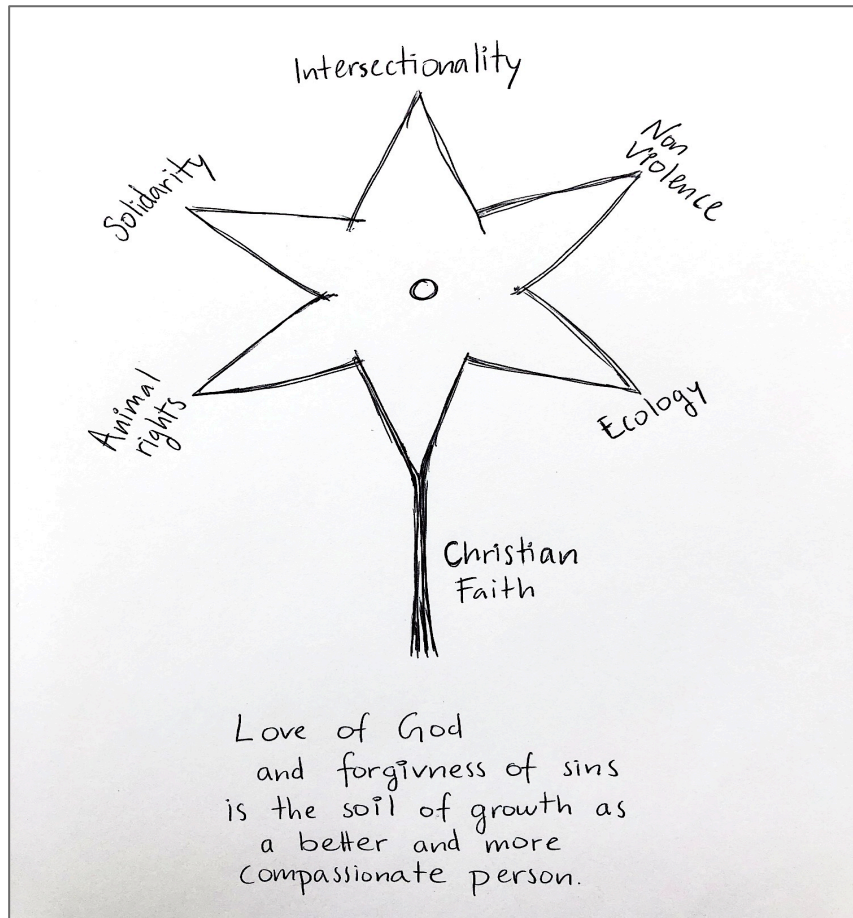 Intersectionality
Non
violence
Solidarity
Animal
rights
Ecology
Christian
Faith
Love of God
and forgivness of sins
is the soil of growth as
a better and more
compassionate person.